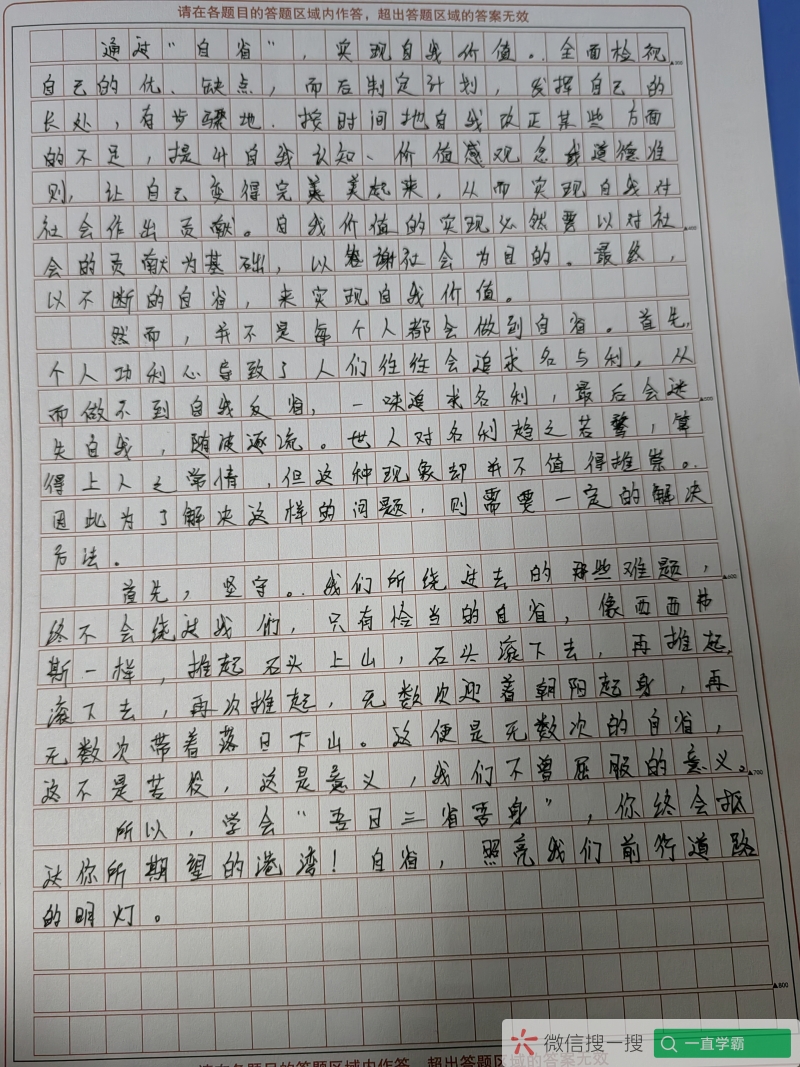 请在各题目的答题区域内作答，超出答题区域的答案无效
通过“自省”，实现自我价值。全面检视
自己的优、缺点，而后制定计划，发挥自己的
长处，有步骤地、按时间地自我改正某些方面
的不足，提升自我认知、价值感观念或道德准
则，让自己变得完美美起来，从而实现自我对
社会作出贡献。自我价值的实现必然要以对社
会的贡献为基础，以答谢社会为目的。最终，
以不断的自省，来实现自我价值。
然而，并不是每个人都会做到自省。首先，
个人功利心导致了人们往往会追求名与利，从
而做不到自我反省，一味追求名利，最后会迷
失自我，随波逐流。世人对名利趋之若鹜，算
得上人之常情，但这种现象却并不值得推崇。
因此为了解决这样的问题，则需要一定的解决
方法。
首先，坚守。我们所绕过去的那些难题，
终不会绕过我们，只有恰当的自省，像西西弗
斯一样，推起石头上山，石头滚下去，再推起，
滚下去，再次推起，无数次迎着朝阳起身，再
无数次带着落日下山。这便是无数次的自省，
这不是苦役，这是意义，我们不曾屈服的意义。
所以，学会“吾日三省吾身”，你终会抵
达你所期望的港湾！自省，照亮我们前行道路
的明灯。
▲300
▲400
▲500
▲600
▲700
▲800
请在各题目的答题区域内作答，超出答题区域的答案无效
微信搜一搜
一直学霸